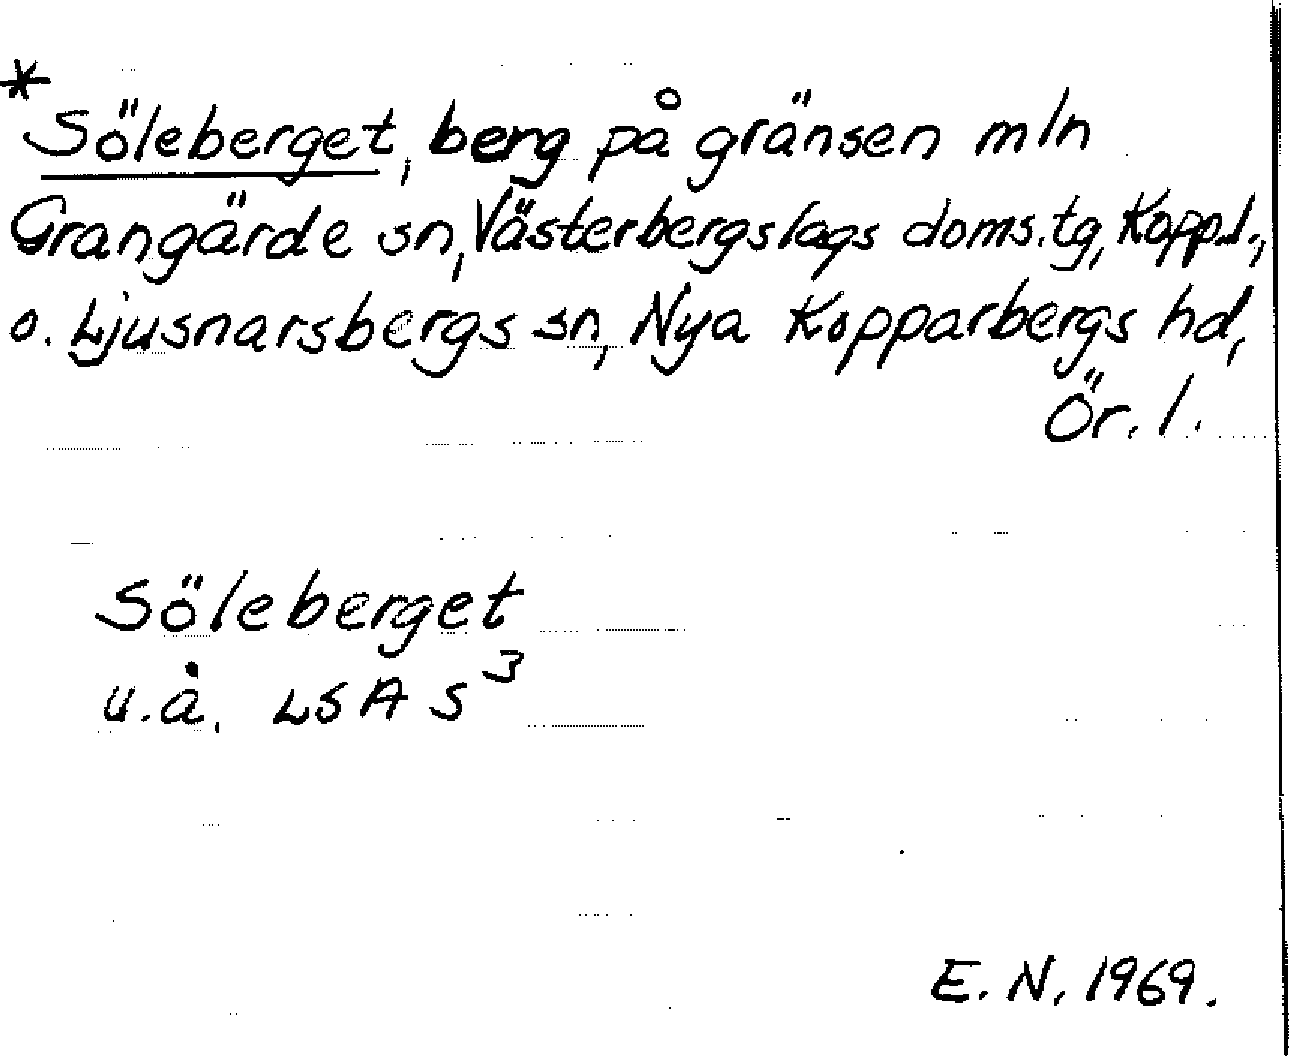 *
Söleberget, berg på gränsen mln
Grangärde sn, Västerbergslags doms.tg, Kopp.l.,
o. Ljusnarsbergs sn, Nya Kopparbergs hd,
Ör. l.
Söleberget
u.å. LSA S³
E. N. 1969.